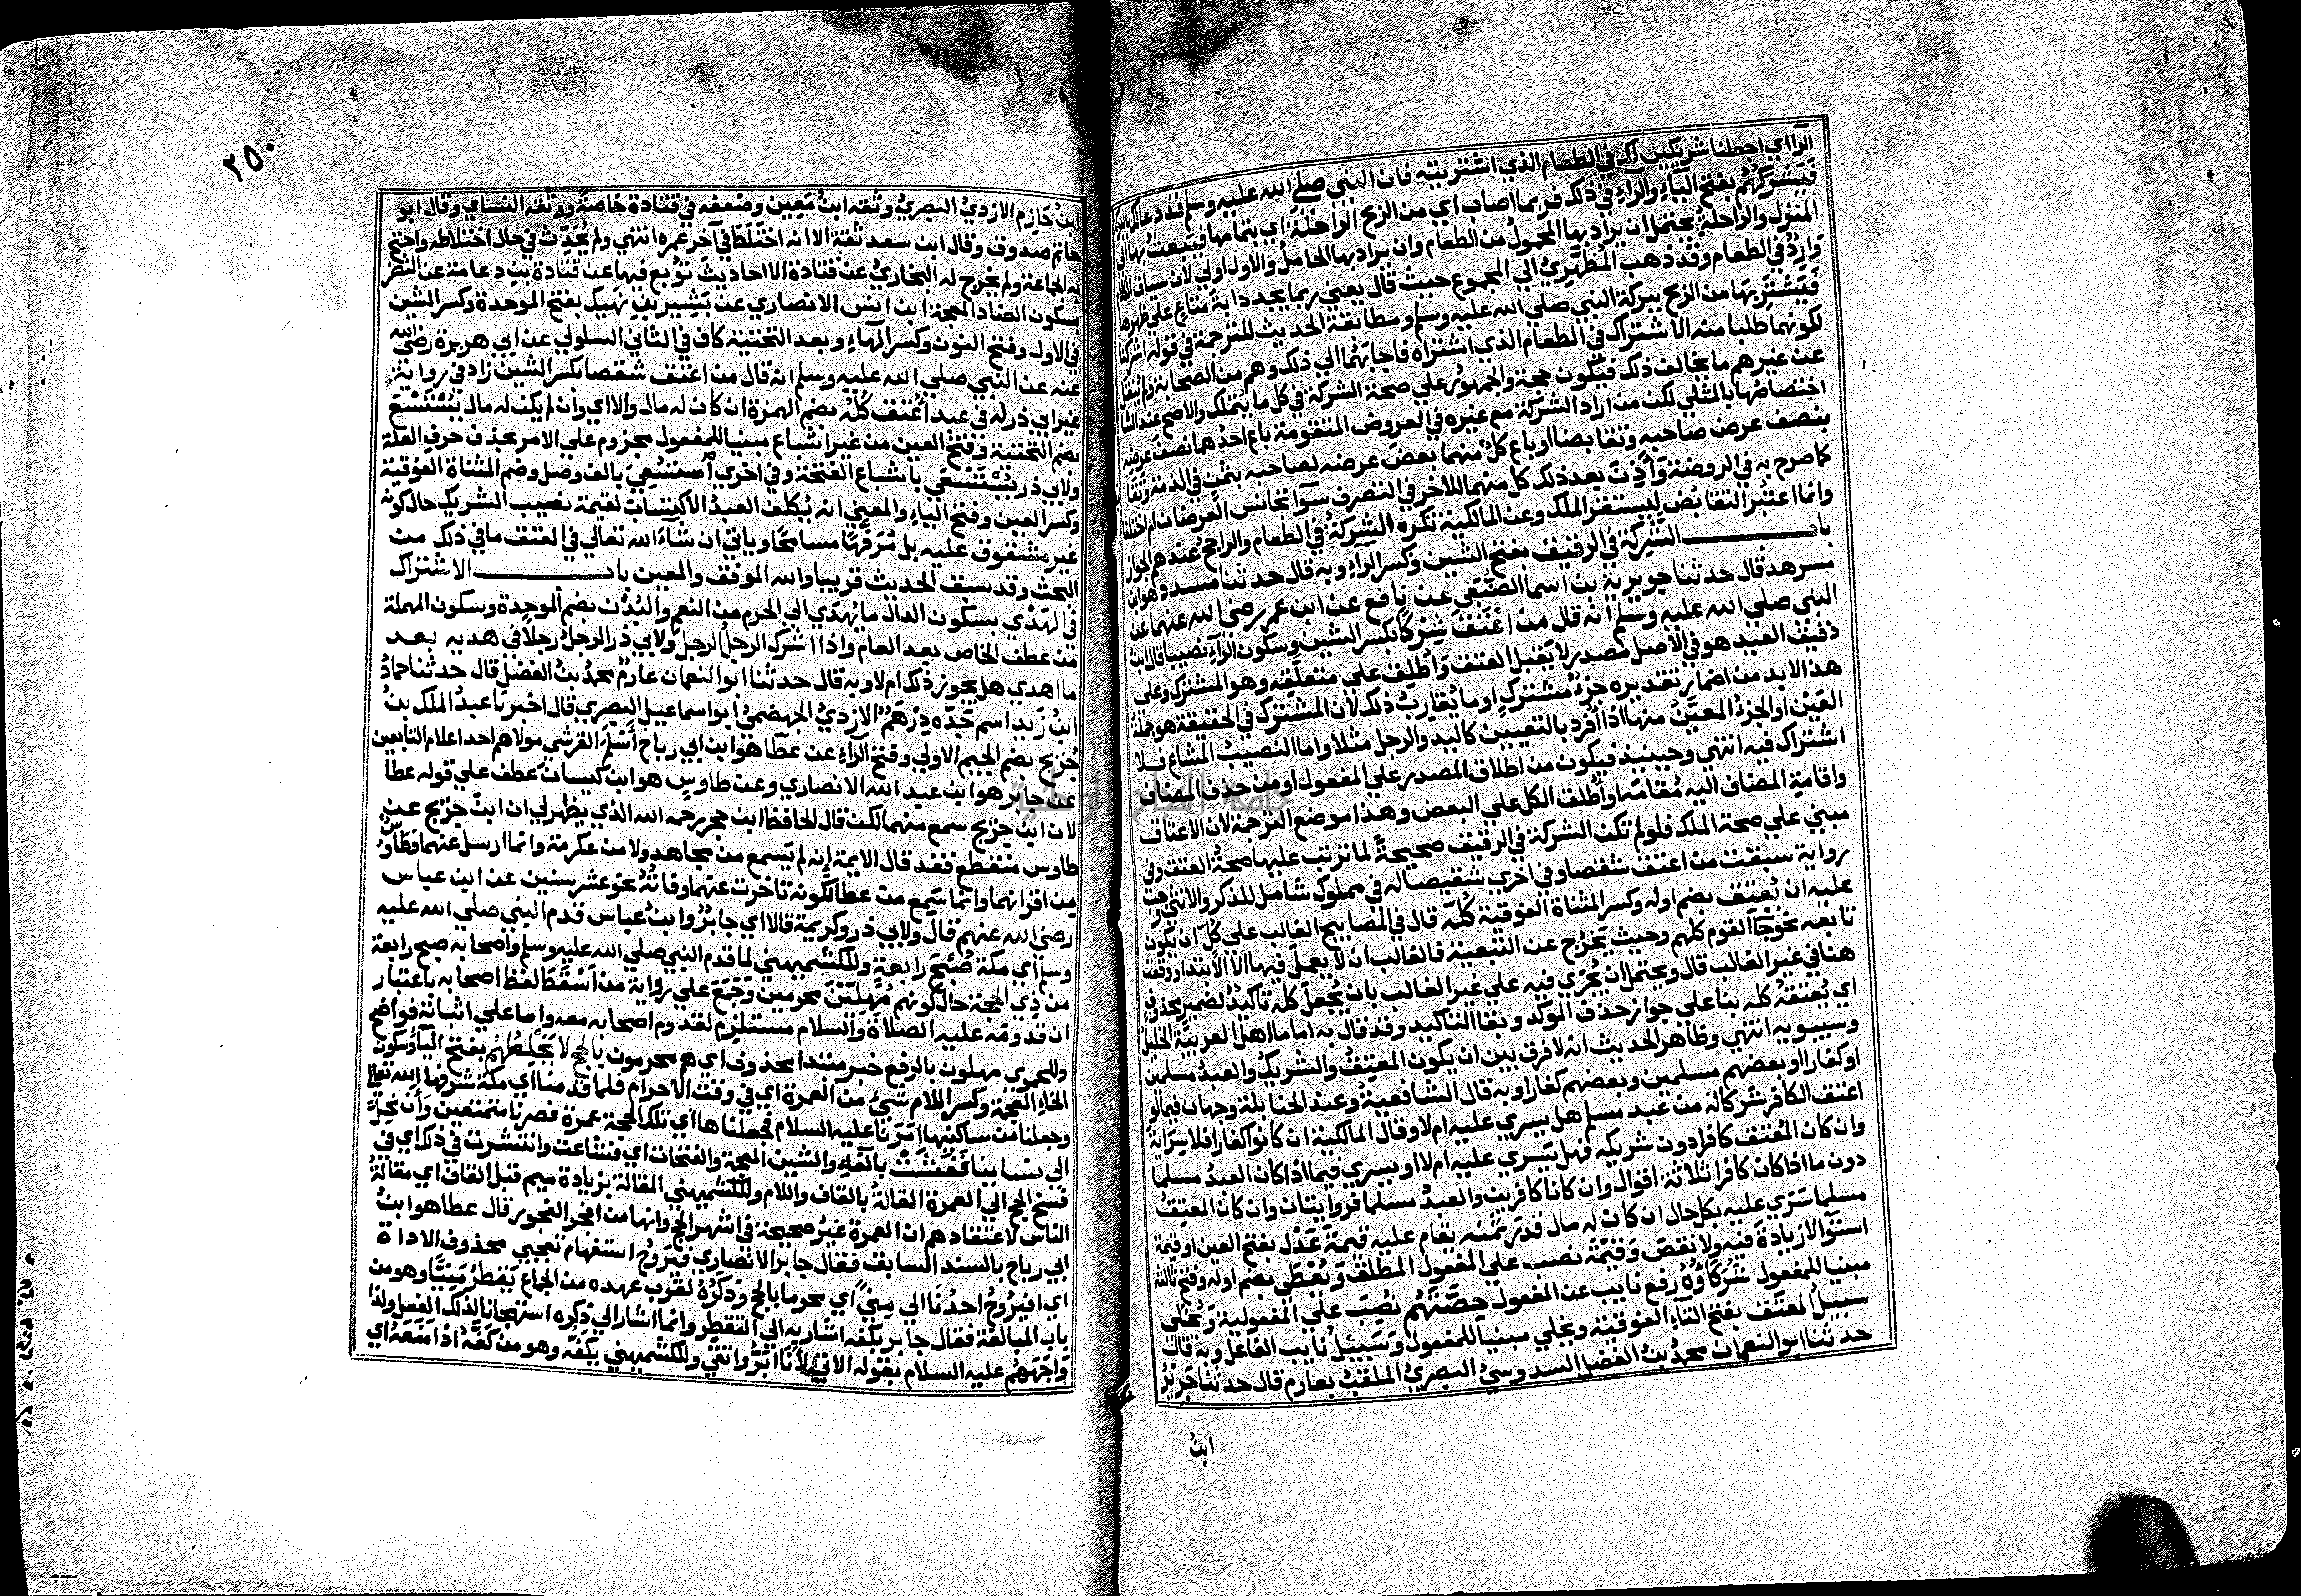 الرا اي اجعلنا شريكين لك في الطعام الذي اشتريته فان النبي صلى الله عليه وسلم قد دعا لك بالبركة
فيشركهم بفتح الياء والراء في ذلك فربما اصاب اي من الربح الراحلة اي بتمامها فيبعث بها الي
المنزل والراحلة يحتمل ان يراد بها المحمول من الطعام وان يراد بها الحامل والاول اولي لان سياق الكلام
وارد في الطعام وقد ذهب المظهري الي المجموع حيث قال يعني ربما يجد دابة متاع علي ظهرها
فيشتريها من الربح ببركة النبي صلي الله عليه وسلم ومطابقة الحديث للترجمة في قوله اشركنا
لكونهما طلبا منه الاشتراك في الطعام الذي اشتراه فاجابهما الي ذلك وهم من الصحابة ولم ينقل
عن غيرهم ما يخالف ذلك فيكون حجة والجمهور علي صحة الشركة في كل ما يتملك والاصح عند الشا
اختصاصها بالمثلي لكن من اراد الشركة مع غيره في العروض المتقومة باع احدهما نصف عرضه
بنصف عرض صاحبه وتقابضا او باع كل منهما بعض عرضه لصاحبه بثمن في الذمة وتقا
كما صرح به في الروضة واذن بعد ذلك كل منهما للاخر في التصرف سوا تجانس العرضان ام اختلفا
وانما اعتبر التقابض ليستقر الملك وعن المالكية تكره الشركة في الطعام والراجح عندهم الجواز
باب الشركة في الرقيق بفتح الشين وكسر الراء وبه قال حدثنا مسدد وهو ابن
مسرهد قال حدثنا جويرية بن اسما الضبعي عن نافع عن ابن عمر رضي الله عنهما عن
النبي صلي الله عليه وسلم انه قال من اعتق شركا بكسر الشين وسكون الراء نصيبا قال ابن
دقيق العيد هو في الاصل مصدر لا يقبل العتق واطلق علي متعلقه وهو المشترك وعلي
هذا لابد من اضمار تقديره جزء مشترك او ما يقارب ذلك لان المشترك في الحقيقة هو جملة
العين او الجزء المعين منها اذا افرد بالتعيين كاليد والرجل مثلا واما النصيب المشاع فلا
اشتراك فيه انتهي وحينيذ فيكون من اطلاق المصدر علي المفعول او من حذف المضاف
واقامة المضاف اليه مقامه او اطلق الكل علي البعض وهذا موضع الترجمة لان الاعتاق
مبني علي صحة الملك فلو لم تكن الشركة في الرقيق صحيحة لما ترتب عليها صحة العتق وفي
رواية سبقت من اعتق شقصا وفي اخري شقيصا له في مملوك شامل للذكر والانثي
عليه ان يعتق بضم اوله وكسر المثناة الفوقية كله قال في المصابيح الغالب علي كل ان يكون
تابعه نحو جا القوم كلهم وحيث يخرج عن التبعية فالغالب ان لا يعمل فيها الا الابتدا ووقعت
هنا في غير الغالب قال ويحتمل ان يجري فيه علي غير الغالب بان يجعل كله تاكيدا لضمير محذوف
اي يعتقه كله بنا علي جواز حذف الموكد وبقا التاكيد وقد قال به اماما اهل العربية الخليل
وسيبويه انتهي وظاهر الحديث انه لا فرق بين ان يكون المعتق والشريك والعبد مسلمين
او كفارا او بعضهم مسلمين وبعضهم كفارا وبه قال الشافعية وعند الحنابلة وجهان فيما لو
اعتق الكافر شركا له من عبد مسلم هل يسري عليه ام لا وقال المالكية ان كانوا كفارا فلا سراية
وان كان المعتق كافرا دون شريكه فهل يسري عليه ام لا او يسري فيما اذا كان العبد مسلما
دون ما اذا كان كافرا ثلاثة اقوال وان كانا كافرين والعبد مسلما فروايتان وان كان المعتق
مسلما سري عليه بكل حال ان كان له مال قدر ثمنه يقام عليه قيمة عدل بفتح العين او قيمة
استوا لا زيادة فيه ولا نقص وقيمة نصب علي المفعول المطلق ويعطي بضم اوله وفتح ثالثه
مبنيا للمفعول شركاؤه رفع نايب عن المفعول حصتهم نصب علي المفعولية ويخلي
سبيل المعتق بفتح التاء الفوقية ويخلي مبنيا للمفعول وسبيل نايب الفاعل وبه قال
حدثنا ابو النعمان محمد بن الفضل السدوسي البصري الملقب بعارم قال حدثنا جرير
ابن
٢٥٠
ابن حازم الازدي البصري وثقه ابن معين وضعفه في قتادة خاصة ووثقه النساي وقال ابو
حاتم صدوق وقال ابن سعد ثقة الا انه اختلط في آخر عمره انتهي ولم يحدث في حال اختلاطه واحتج
به الجماعة ولم يخرج له البخاري عن قتادة الا احاديث توبع فيها عن قتادة بن دعامة عن النضر
بسكون الضاد المعجمة ابن انس الانصاري عن بشير بن نهيك بفتح الموحدة وكسر الشين
في الاول وفتح النون وكسر الهاء وبعد التحتية كاف في الثاني السلولي عن ابي هريرة رضي الله
عنه عن النبي صلي الله عليه وسلم انه قال من اعتق شقصا بكسر الشين زاد في رواية
غير ابي ذر له في عبد اعتق كله بضم الهمزة ان كان له مال والا اي وان لم يكن له مال يستسع
بضم التحتية وفتح العين من غير اشباع مبنيا للمفعول مجزوم علي الامر بحذف حرف العلة
ولابي ذر يستسعي باشباع الفتحة وفي اخري استسعي بالف وصل وضم المثناة الفوقية
وكسر العين وفتح الياء والمعني انه يكلف العبد الاكتساب لقيمة نصيب الشريك حال كونه
غير مشقوق عليه بل مرفها مسامحا وياتي ان شاء الله تعالي في العتق ما في ذلك من
البحث وقد سبق الحديث قريبا والله الموفق والمعين باب الاشتراك
في الهدي بسكون الدال ما يهدي الي الحرم من النعم والبدن بضم الموحدة وسكون المهملة
من عطف الخاص بعد العام واذا اشرك الرجل الرجل ولابي ذر الرجل رجلا في هديه بعد
ما اهدي هل يجوز ذلك ام لا وبه قال حدثنا ابو النعمان عارم محمد بن الفضل قال حدثنا حماد
ابن زيد اسم جده درهم الازدي الجهضمي ابو اسماعيل البصري قال اخبرنا عبد الملك بن
جريج بضم الجيم الاولي وفتح الراء عن عطا هو ابن ابي رباح اسلم القرشي مولاهم احد اعلام التابعين
عن جابر هو ابن عبد الله الانصاري وعن طاوس هو ابن كيسان عطف علي قوله عطا
لان ابن جريج سمع منهما لكن قال الحافظ ابن حجر رحمه الله الذي يظهر لي ان ابن جريج عن
طاوس منقطع فقد قال الايمة انه لم يسمع من مجاهد ولا من عكرمة وانما ارسل عنهما وطاوس
من اقرانهما وانما سمع من عطا لكونه تاخرت عنهما وفاته نحو عشر سنين عن ابن عباس
رضي الله عنهم قال ولابي ذر وكريمة قالا اي جابر وابن عباس قدم النبي صلي الله عليه
وسلم اي مكة صبح رابعة وللكشميهني لما قدم النبي صلي الله عليه وسلم واصحابه صبح رابعة
من ذي الحجة حال كونهم مهلين محرمين وجمع علي رواية من اسقط لفظ اصحابه باعتبار
ان قدومه عليه الصلاة والسلام مستلزم لقدوم اصحابه معه واما علي اثباته فواضح
وللحموي مهلون بالرفع خبر مبتدا محذوف اي هم محرمون بالحج لا يخلطهم بفتح الياء وسكون
الخاء المعجمة وكسر اللام شيء من العمرة اي في وقت الاحرام فلما قدمنا اي مكة شرفها الله تعالي
وجعلنا من ساكنيها امرنا عليه السلام فجعلناها اي تلك الحجة عمرة فصرنا متمتعين وان نحل
الي نسا بنا ففشت بالفاء والشين المعجمة والفتحات اي فشاعت وانتشرت في ذلك اي في
فسخ الحج الي العمرة القالة بالقاف واللام وللكشميهني المقالة بزيادة ميم قبل القاف اي مقالة
الناس لاعتقادهم ان العمرة غير صحيحة في اشهر الحج وانها من افجر الفجور قال عطا هو ابن
ابي رباح بالسند السابق فقال جابر الانصاري فيروح استفهام تعجبي محذوف الاداة
اي افيروح احدنا الي مني اي محرما بالحج وذكره لقرب عهده من الجماع يقطر منيا وهو من
باب المبالغة فقال جابر بكفه اشار به الي التقطر وانما اشار الي ذكره استهجانا لذلك الفعل ولذا
واجههم عليه السلام بقوله الاتي لانا ابر واتقي وللكشميهني يكفه وهو من كفه اذا منعه اي